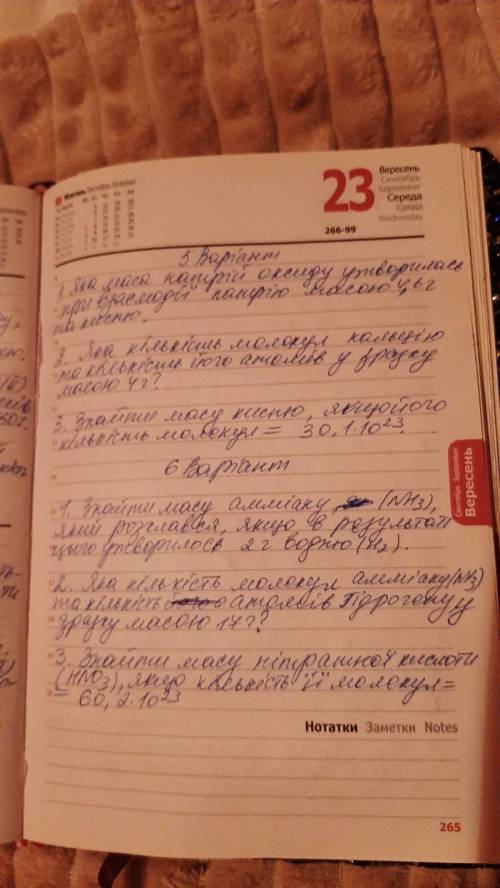 Жовтень Октябрь October
23
Вересень
Сентябрь
September
Середа
Среда
Wednesday
266-99
5 Варіант
1. Яка маса натрій оксиду утворилась
при взаємодії натрію масою 4,6 г
та кисню.
2. Яка кількість молекул кальцію
та кількість його атомів у зразку
масою 4 г?
3. Знайти масу кисню, якщо його
кількість молекул = 30,1·10²³.
6 Варіант
1. Знайти масу амміаку (NH₃),
який розклався, якщо в результаті
цього утворилось 2 г водню (H₂).
2. Яка кількість молекул амміаку (NH₃)
та кількість атомів Гідрогену у
зразку масою 17 г?
3. Знайти масу нітратної кислоти
(HNO₃), якщо кількість її молекул =
= 60,2·10²³
Сентябрь September
Вересень
Нотатки Заметки Notes
265